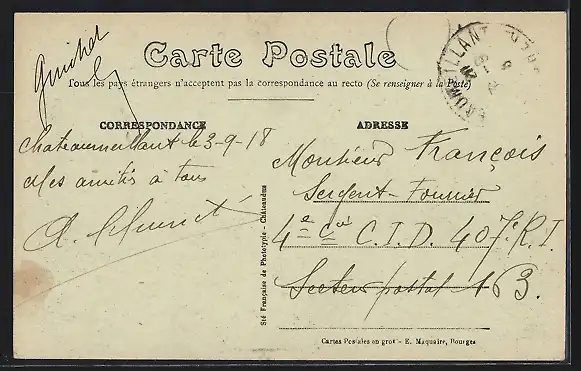 Guichet
Carte Postale
Tous les pays étrangers n'acceptent pas la correspondance au recto (Se renseigner à la Poste)
CORRESPONDANCE
Chateaumeillant le 3-9-18
Mes amitiés à tous
ADRESSE
Monsieur François
Sergent-Fourrier
4e Cie C.I.D. 407e R.I.
Secteur postal 163.
Sté Française de Phototypie - Châteaudun
Cartes Postales en gros - E. Maquaire, Bourges